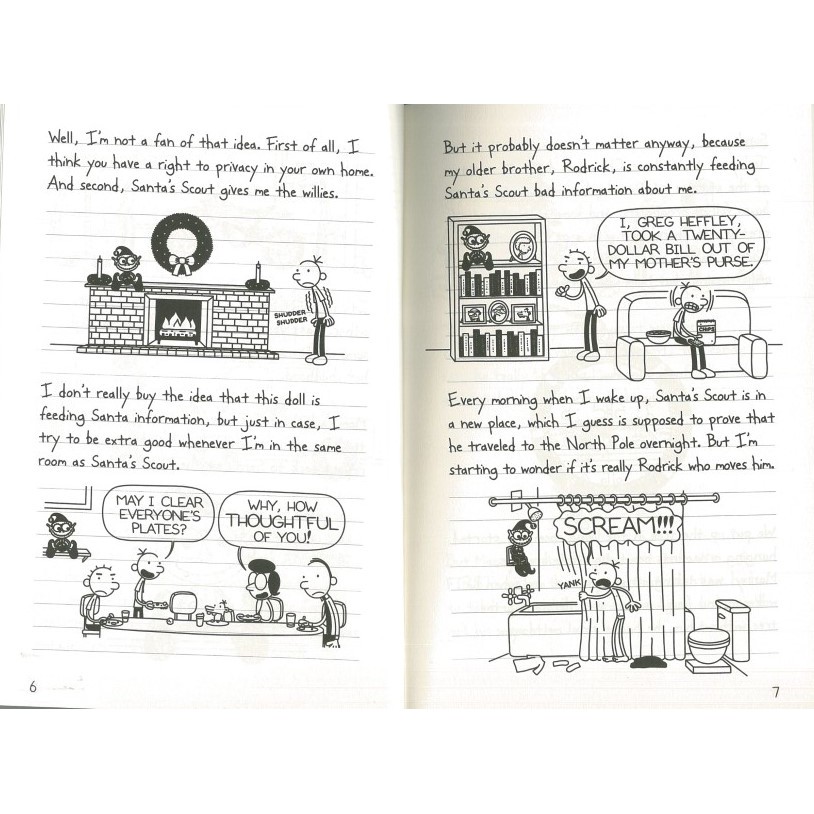 Well, I'm not a fan of that idea. First of all, I
think you have a right to privacy in your own home.
And second, Santa's Scout gives me the willies.
SHUDDER
SHUDDER
I don't really buy the idea that this doll is
feeding Santa information, but just in case, I
try to be extra good whenever I'm in the same
room as Santa's Scout.
MAY I CLEAR
EVERYONE'S
PLATES?
WHY, HOW
THOUGHTFUL
OF YOU!
6
But it probably doesn't matter anyway, because
my older brother, Rodrick, is constantly feeding
Santa's Scout bad information about me.
I, GREG HEFFLEY,
TOOK A TWENTY-
DOLLAR BILL OUT OF
MY MOTHER'S PURSE.
CHIPS
Every morning when I wake up, Santa's Scout is in
a new place, which I guess is supposed to prove that
he traveled to the North Pole overnight. But I'm
starting to wonder if it's really Rodrick who moves him.
SCREAM!!!
YANK
7